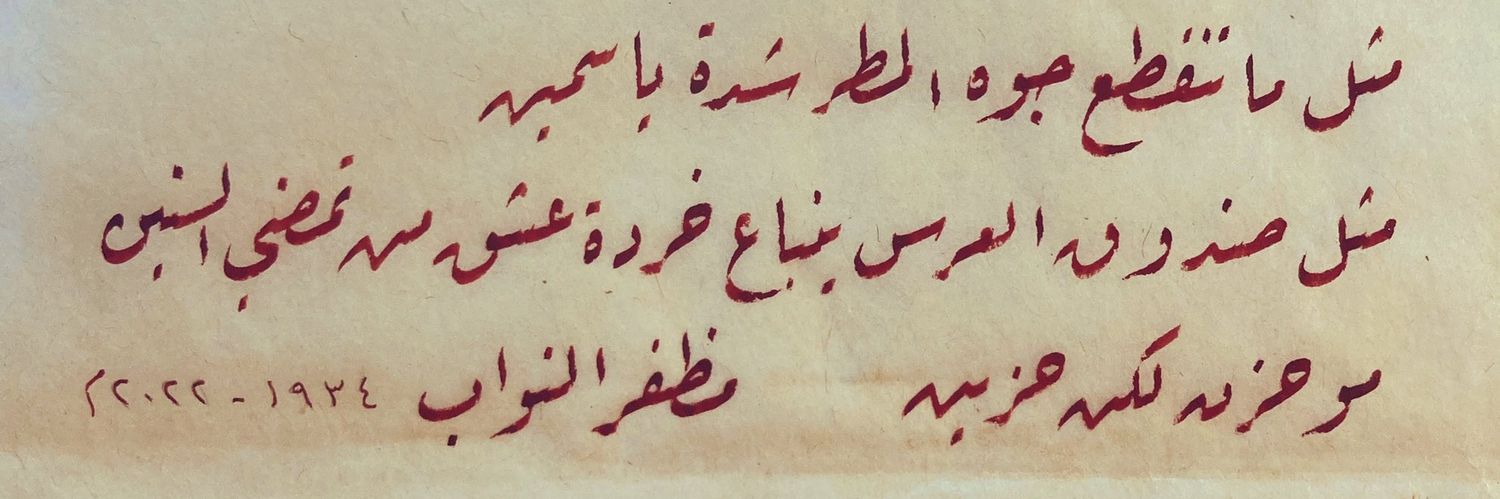 مثل ما تنقطع جوه المطر شدة ياسمين
مثل صندوق العرس ينباع خردة عشق من تمضي السنين
مو حزن لكن حزين مظفر النواب ١٩٣٤ - ٢٠٢٢م